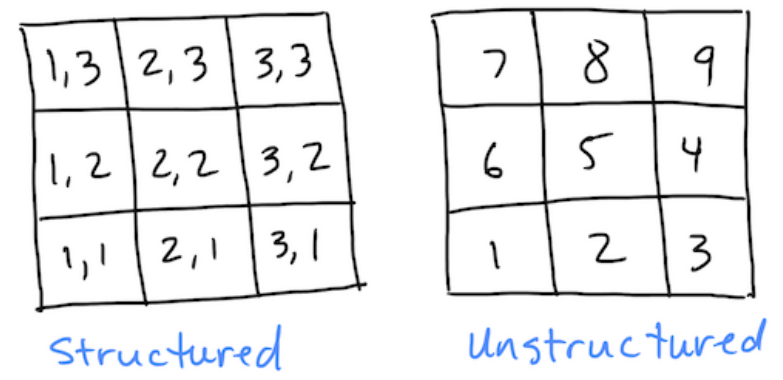 1,3 2,3 3,3
1,2 2,2 3,2
1,1 2,1 3,1
Structured
7 8 9
6 5 4
1 2 3
Unstructured